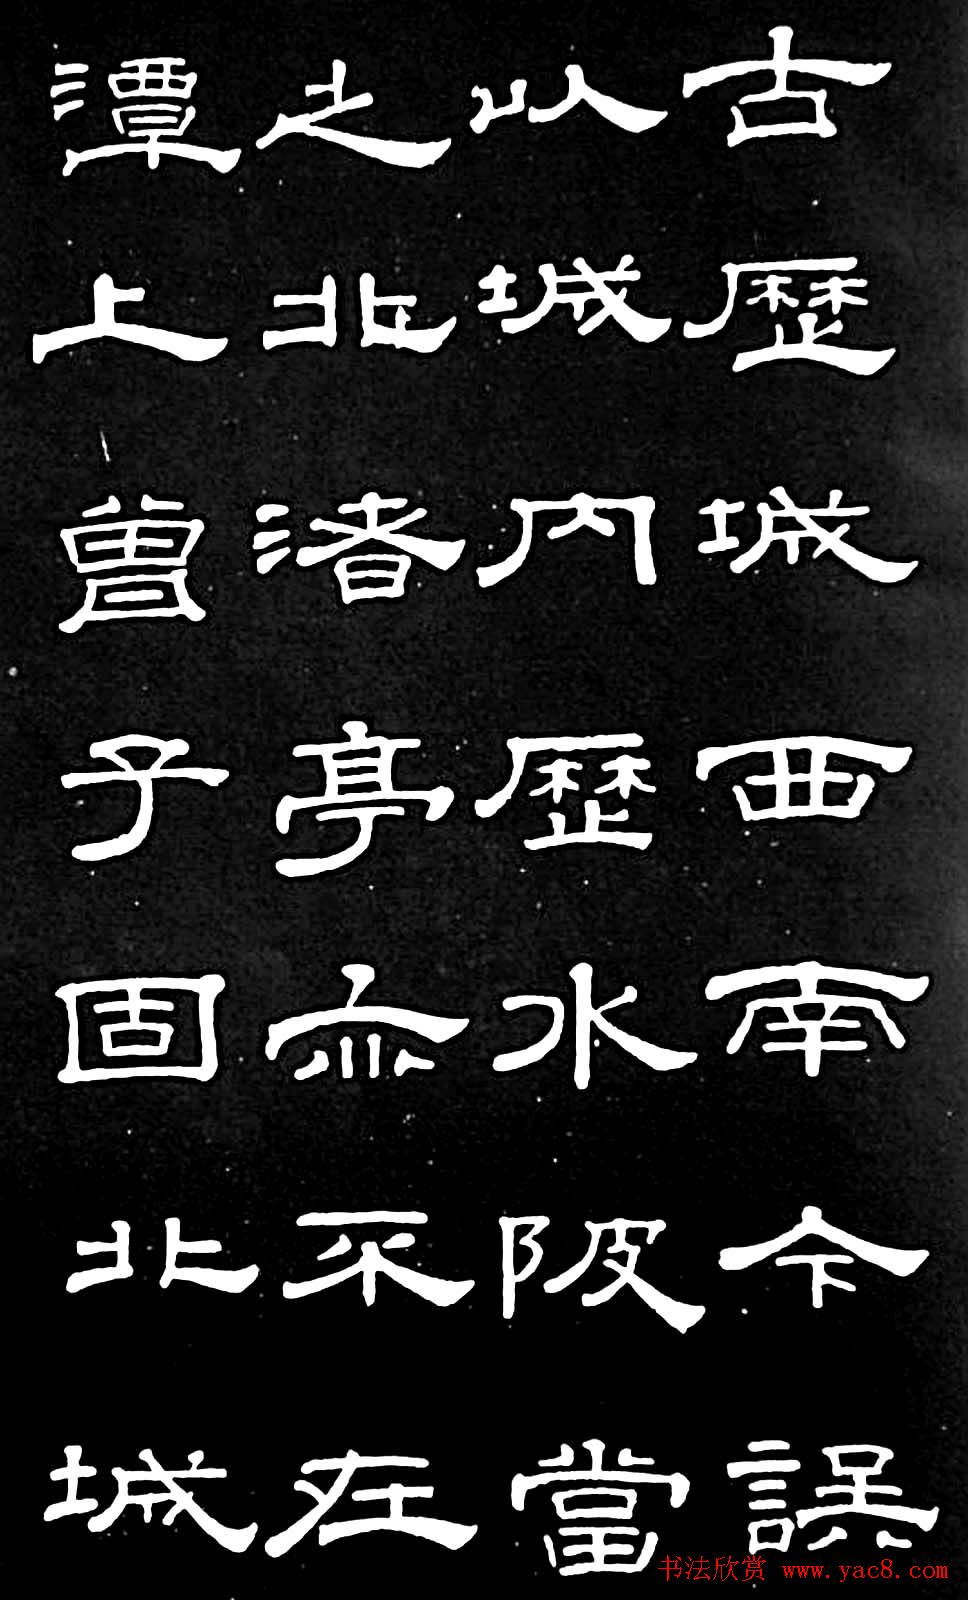 古歷城西南今誤
以城內歷水陂當
之北渚亭亦不在
潭上曾子固北城
书法欣赏 www.yac8.com